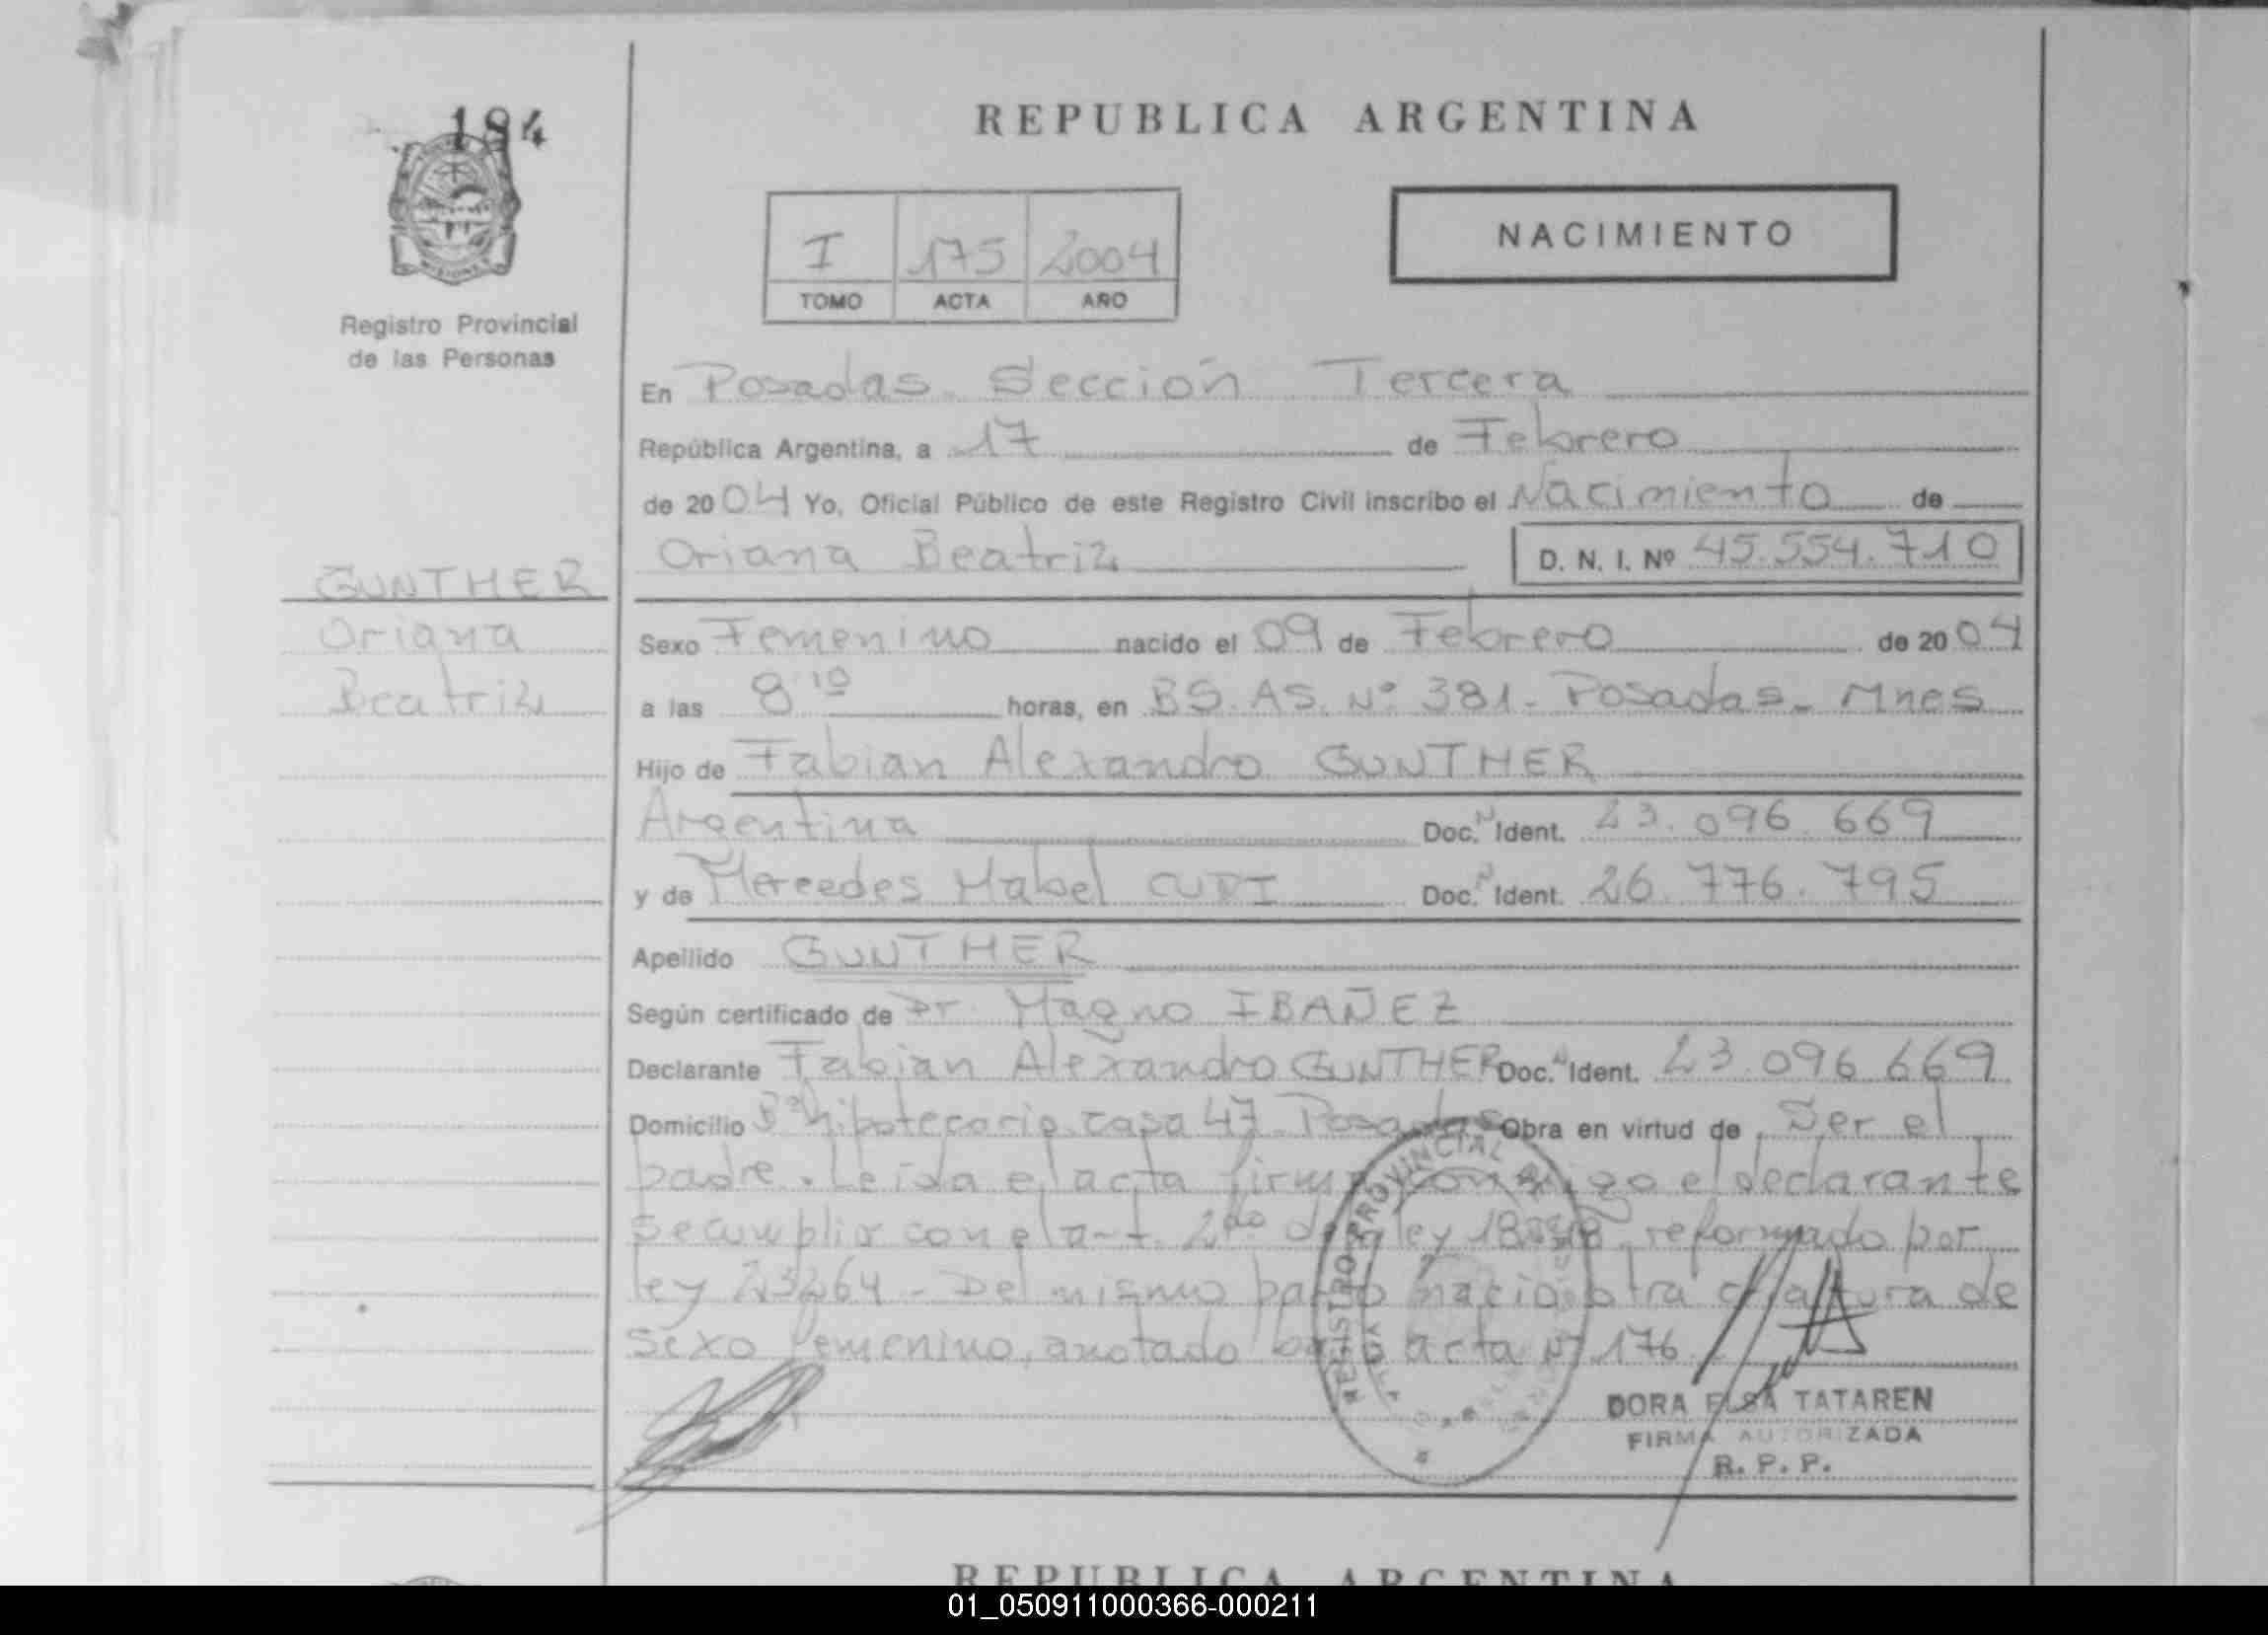 194
REPUBLICA ARGENTINA
I 175 2004
TOMO ACTA AÑO
NACIMIENTO
Registro Provincial
de las Personas
En Posadas Sección Tercera
República Argentina, a 17 de Febrero
de 2004 Yo, Oficial Público de este Registro Civil inscribo el Nacimiento de
Oriana Beatriz D. N. I. Nº 45.554.710
GUNTHER
Oriana
Beatriz
Sexo Femenino nacido el 09 de Febrero de 2004
a las 8 10 horas, en BS. AS. Nº 381 - Posadas - Mnes
Hijo de Fabian Alexandro GUNTHER
Argentina Doc. Ident. 23.096.669
y de Mercedes Mabel Doc. Ident. 26.776.795
Apellido GUNTHER
Según certificado de Dr. Magno IBAÑEZ
Declarante Fabian Alexandro GUNTHER Doc. Ident. 23.096.669
Domicilio Bº hipotecario casa 47 Posadas Obra en virtud de Ser el
padre. Leida el acta firma conmigo el declarante
Se cumplio con el art. 2do de la ley reformado por
ley 23264 - Del mismo parto nacio otra criatura de
sexo femenino, anotado bajo acta Nº 176
REGISTRO PROVINCIAL
DORA ELSA TATAREN
FIRMA AUTORIZADA
R. P. P.
REPUBLICA ARGENTINA
01_050911000366-000211